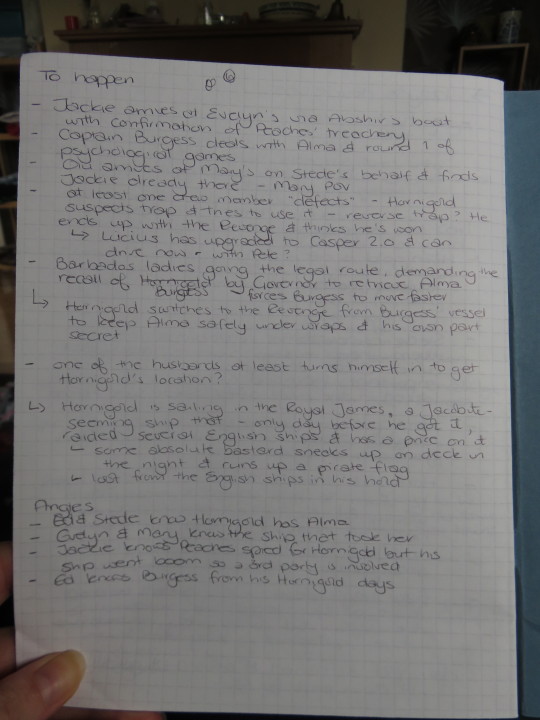 To happen
- Jackie arrives at Evelyn's via Abshir's boat
with confirmation of Peaches' treachery
- Captain Burgess deals with Alma & round 1 of
psychological games
- Olu arrives at Mary's on Stede's behalf & finds
Jackie already there - Mary POV
- at least one crew member "defects" - Hornigold
suspects trap & tries to use it - reverse trap? He
ends up with the Revenge & thinks he's won
↳ Lucius has upgraded to Casper 2.0 & can
drive now - with Pete?
- Barbados ladies going the legal route, demanding the
recall of Hornigold by Governor to retrieve Alma
Burgess forces Burgess to move faster
↳ Hornigold switches to the Revenge from Burgess' vessel
to keep Alma safely under wraps & his own part
secret
- one of the husbands at least turns himself in to get
Hornigold's location?
↳ Hornigold is sailing in the Royal James, a Jacobite-
seeming ship that - only day before he got it,
raided several English ships & has a price on it
↳ some absolute bastard sneaks up on deck in
the night & runs up a pirate flag
↳ loot from the English ships in his hold
Angles
- Ed & Stede know Hornigold has Alma
- Evelyn & Mary know the ship that took her
- Jackie knows Peaches spied for Hornigold but his
ship went boom so a 3rd party is involved
- Ed knows Burgess from his Hornigold days